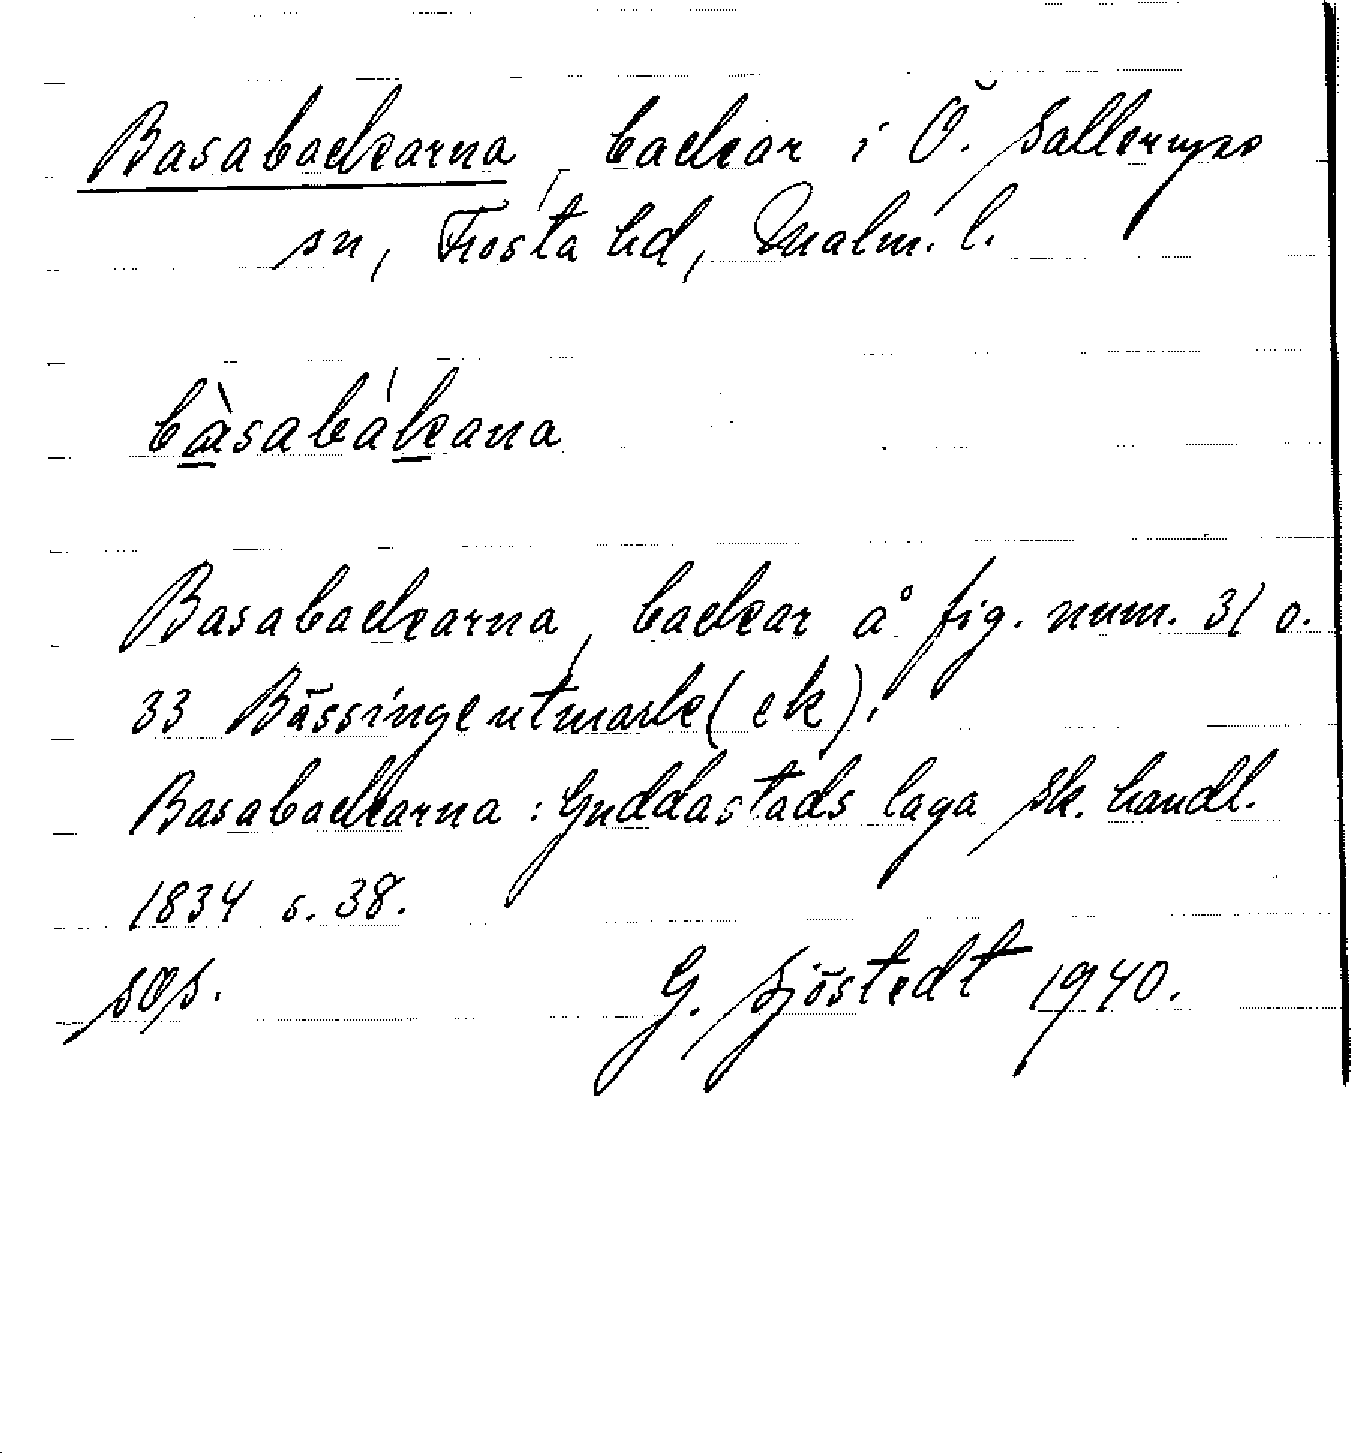 Basabackarna, backar i Ö. Sallerups
sn, Frosta hd, Malm. l.
bàsabákana
Basabackarna, backar å fig. num. 31 o.
33 Bässinge utmark (ek).
Basabackarna: Guddastads laga sk. handl.
1834 s. 38.
sOs.
G. Sjöstedt 1940.